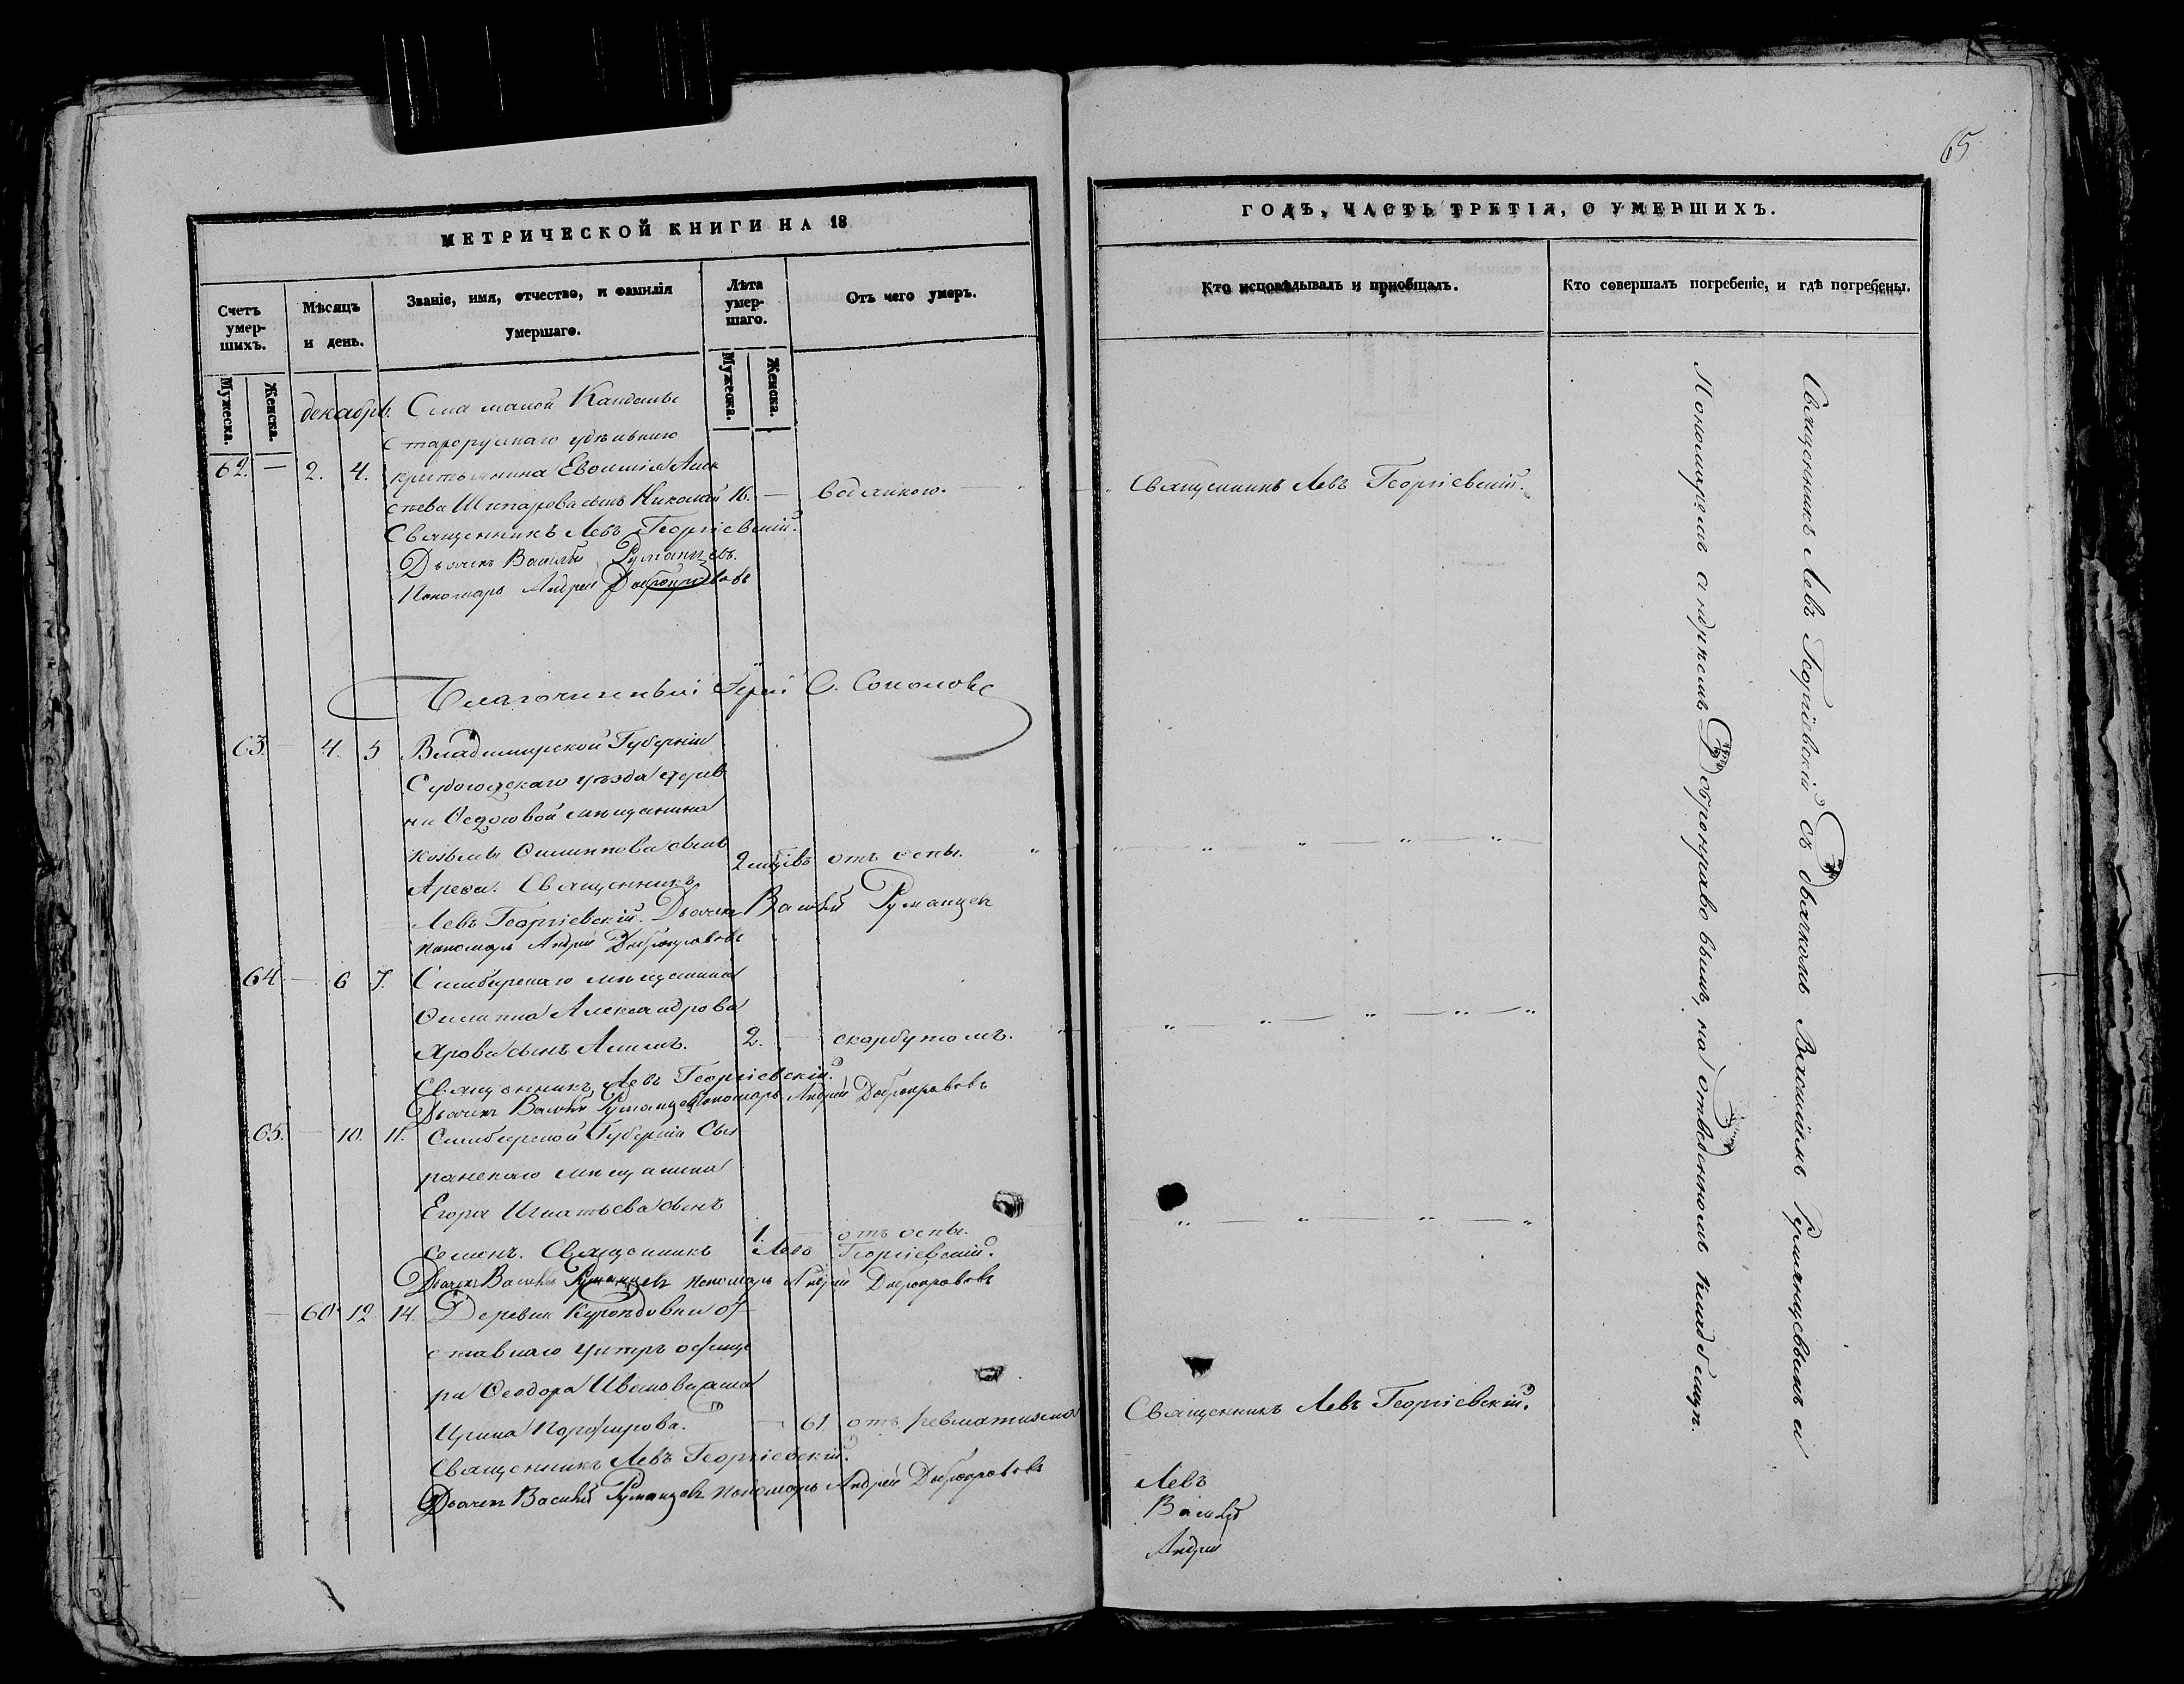 65
МЕТРИЧЕСКОЙ КНИГИ НА 18
ГОДЪ, ЧАСТЬ ТРЕТІЯ, О УМЕРШИХЪ.
Счетъ умершихъ.
Мѣсяцъ и день.
Званіе, имя, отчество, и фамилія умершаго.
Лѣта умершаго.
Отъ чего умеръ.
Кто исповѣдывалъ и пріобщалъ.
Кто совершалъ погребеніе, и гдѣ погребены.
Мужеска.
Женска.
Мужеска.
Женска.
декабрь.
Села малой Кандалы
62. — 2. 4.
Николай 16. — водяною.
Священникъ Левъ Георгіевскій.
Священникъ Левъ Георгіевскій.
Дьячекъ Василій Румянцевъ.
Пономарь Андрей Добронравовъ
Благочинный Іерей С. Соколовъ
63. — 4. 5 Владимирской Губерніи
Судогодскаго уѣзда дерев
ни мѣщанина
Филиппова сынъ
2 отъ оспы.
Арефа. Священникъ
Левъ Георгіевскій. Дьячекъ Василій Румянцевъ
пономарь Андрей Добронравовъ
64 — 6 7. Симбирскаго мѣщанина
Филиппа Александрова
сынъ 2. — скорбутомъ.
Священникъ Левъ Георгіевскій.
Дьячекъ Василій Румянцевъ пономарь Андрей Добронравовъ
65. — 10. 11. Симбирской Губерніи Сыз
ранскаго мѣщанина
Егора Игнатьева сынъ
1. — отъ оспы.
Семенъ. Священникъ Левъ Георгіевскій.
Дьячекъ Василій Румянцевъ пономарь Андрей Добронравовъ
— 60 12 14. Деревни Куроѣдовки от
ставнаго унтеръ офице
ра Феодора Иванова жена
Ирина Порфирова. — 61 отъ ревматизма
Священникъ Левъ Георгіевскій.
Священникъ Левъ Георгіевскій.
Дьячекъ Василій Румянцевъ пономарь Андрей Добронравовъ
Левъ
Василій
Андрей
Священникъ Левъ Георгіевскій съ дьячкомъ Василіемъ Румянцевымъ и
Пономаремъ Андреемъ Добронравовымъ, на отведенномъ кладбищѣ.